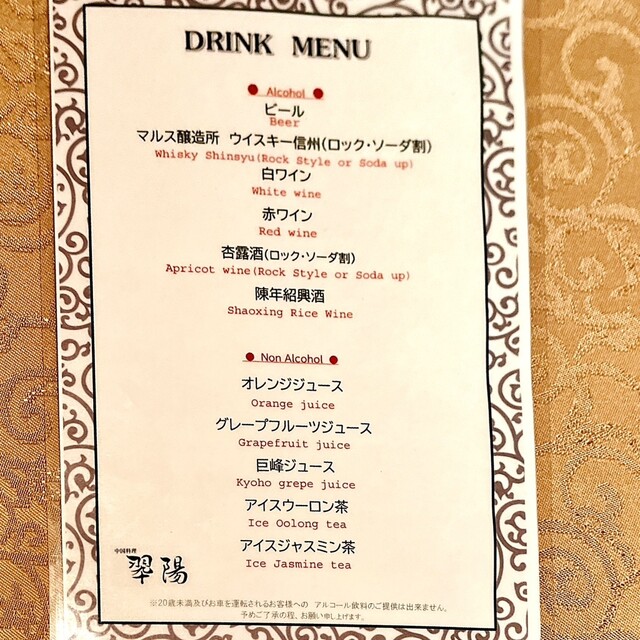 DRINK MENU
● Alcohol ●
ビール
Beer
マルス醸造所 ウイスキー信州(ロック・ソーダ割)
Whisky Shinsyu(Rock Style or Soda up)
白ワイン
White wine
赤ワイン
Red wine
杏露酒(ロック・ソーダ割)
Apricot wine(Rock Style or Soda up)
陳年紹興酒
Shaoxing Rice Wine
● Non Alcohol ●
オレンジジュース
Orange juice
グレープフルーツジュース
Grapefruit juice
巨峰ジュース
Kyoho grepe juice
アイスウーロン茶
Ice Oolong tea
アイスジャスミン茶
Ice Jasmine tea
中国料理
翆陽
※20歳未満及びお車を運転されるお客様への アルコール飲料のご提供は出来ません。
予めご了承の程、お願い申し上げます。